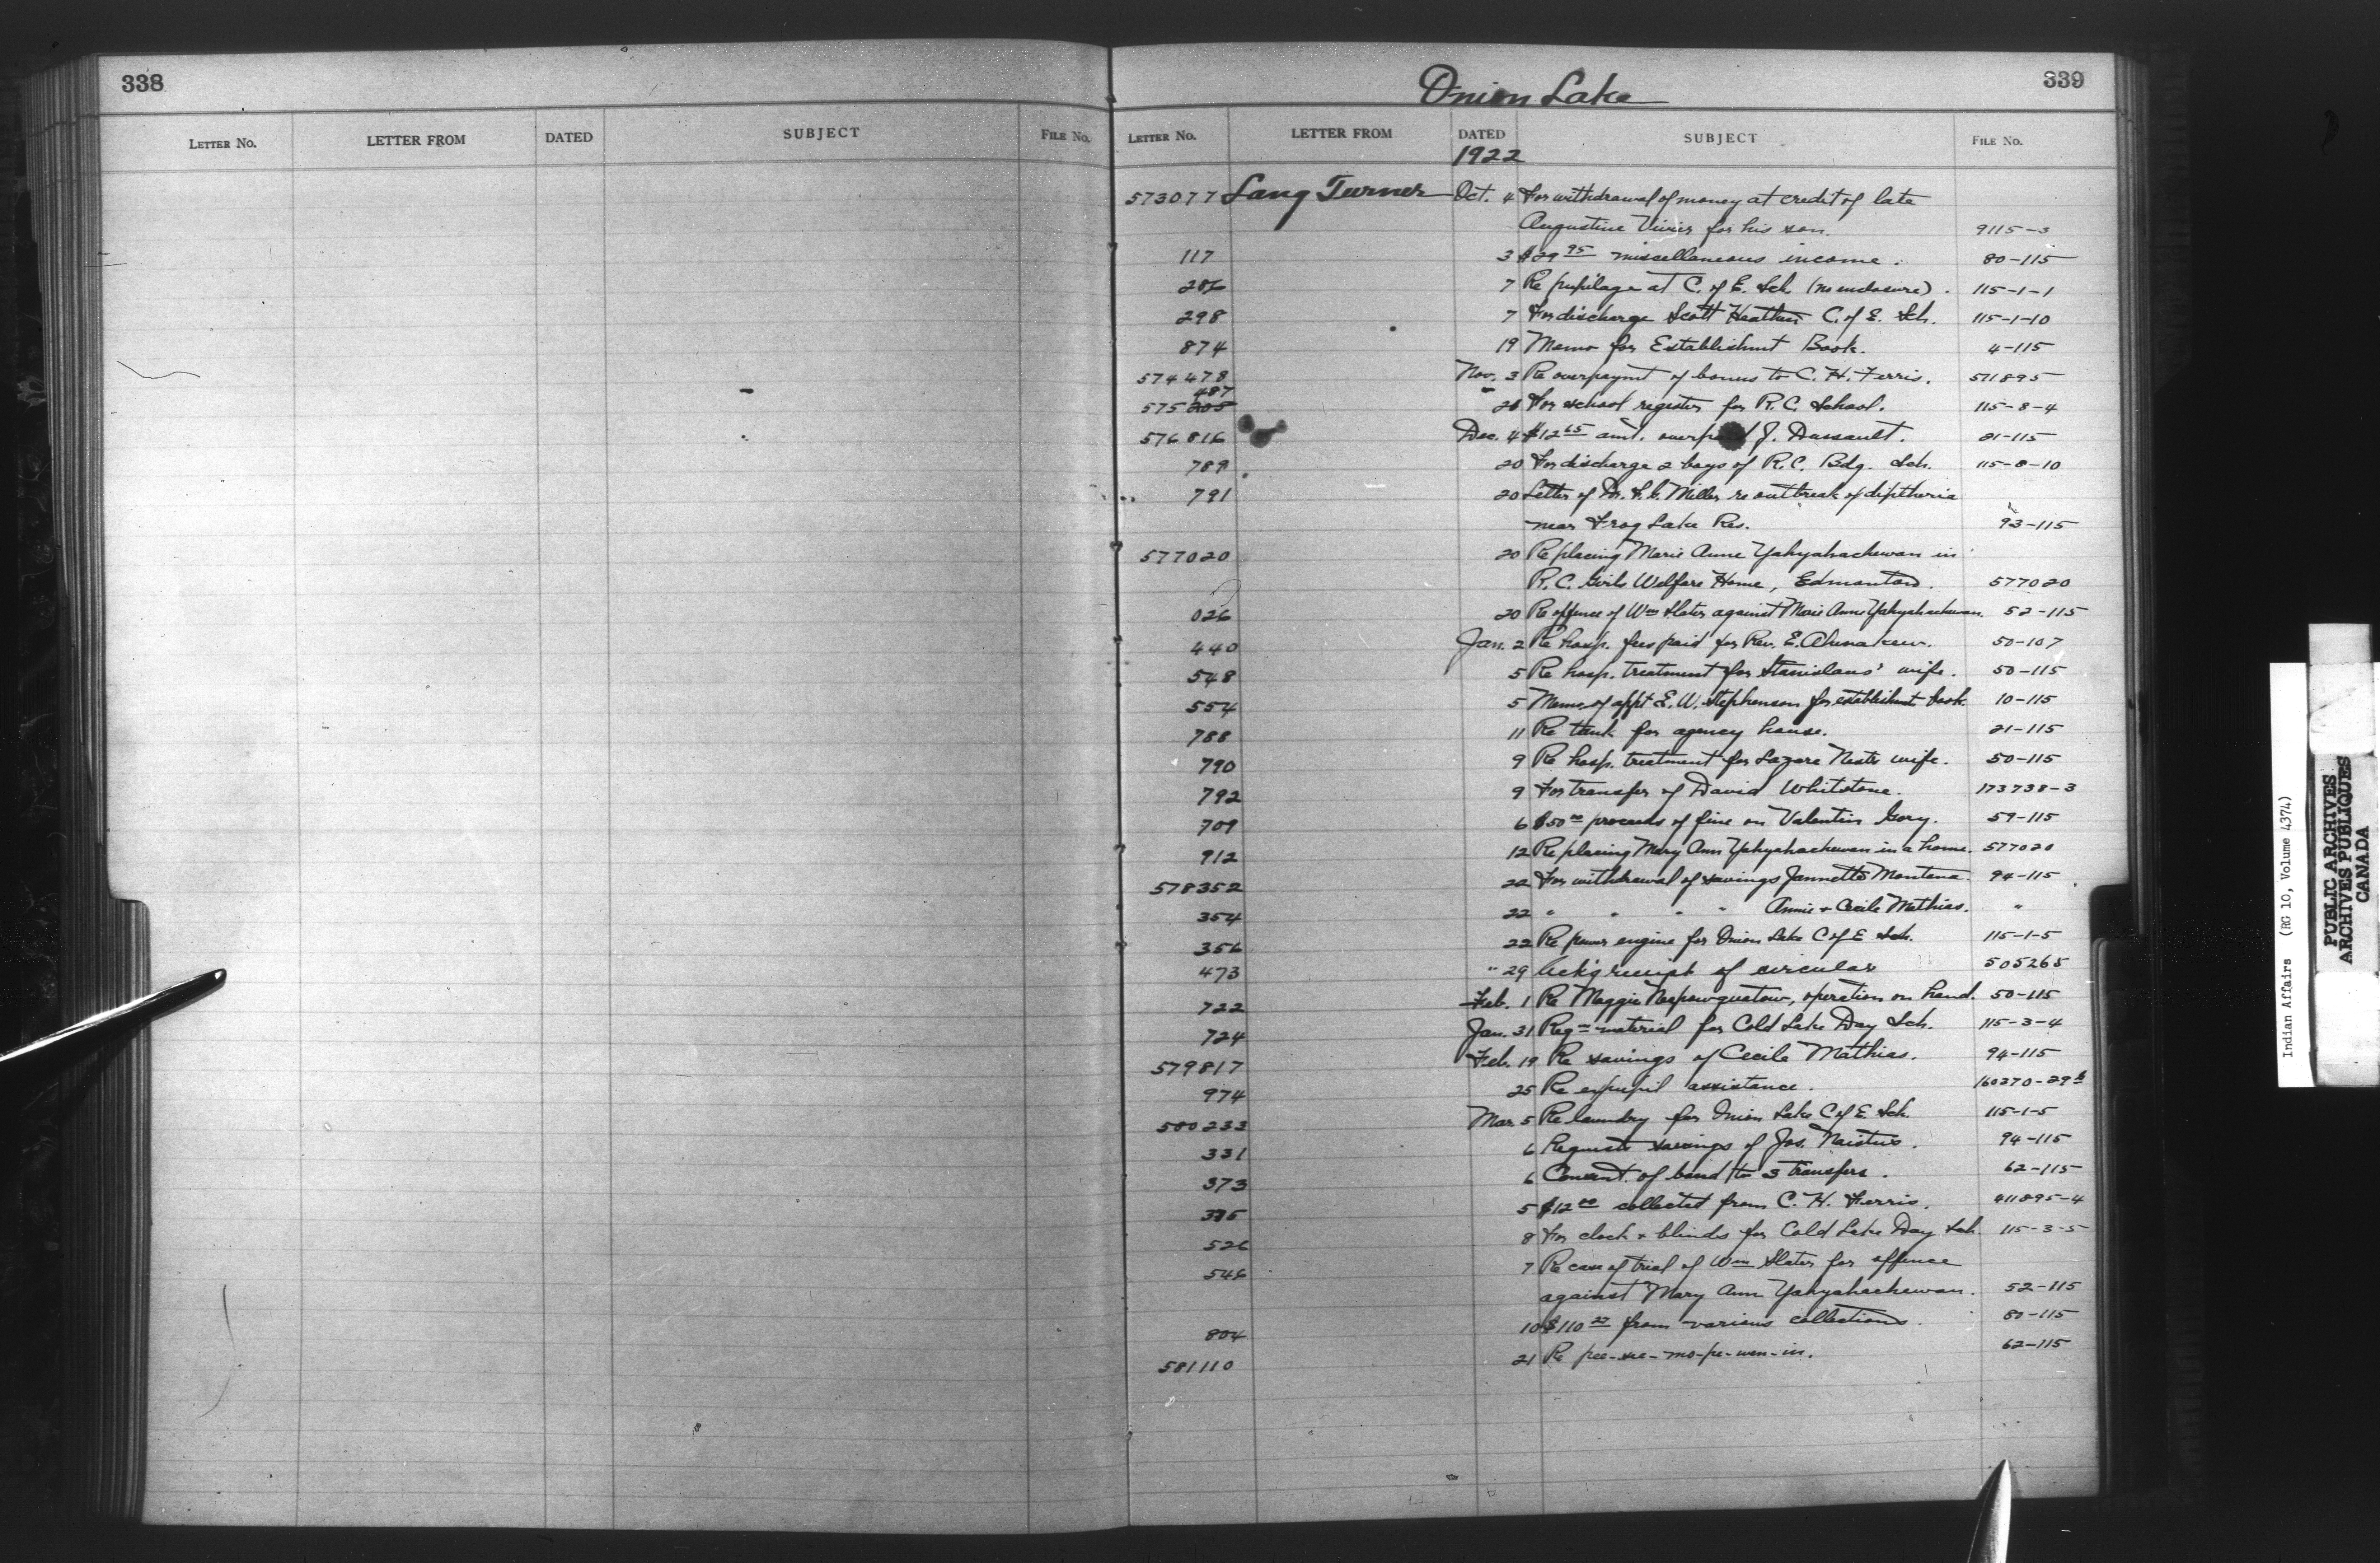 338
LETTER NO. LETTER FROM DATED SUBJECT FILE NO.
Onion Lake 339
LETTER NO. LETTER FROM DATED SUBJECT FILE NO.
1922
573077 Lang Turner Oct. 4 For withdrawal of money at credit of late
Augustine for his son. 9115-3
117 3 $29 95 miscellaneous income. 80-115
286 7 Re pupilage at C. of E. Sch. (no enclosure). 115-1-1
298 7 For discharge Scott Heathen C. of E. Sch. 115-1-10
874 19 Memo for Establishmt Book. 4-115
574478 Nov. 3 Re overpaymt of bonus to C. H. Ferris. 511895
487
575205 " 28 For school register for R.C. School. 115-8-4
576816 Dec. 4 $12 65 amt. overpaid J. Dussault. 21-115
789 20 For discharge 2 boys of R.C. Bdg. Sch. 115-8-10
791 20 Letter of Dr. Miller re outbreak of diptheria
near Frog Lake Res. 93-115
577020 20 Re placing Marie Anne Yahyahachewan in
R.C. Girls Welfare Home, Edmonton. 577020
026 20 Re offence of Wm Slater against Marie Anne Yahyahachewan. 52-115
440 Jan. 2 Re hosp. fees paid for Rev. E. Ahenakew. 50-107
548 5 Re hosp. treatment for Stanislaus' wife. 50-115
554 5 Memo. of appt E. W. Stephenson for establishmt book. 10-115
788 11 Re tank for agency house. 21-115
790 9 Re hosp. treatment for Lazare wife. 50-115
792 9 For transfer of David Whitstone. 173738-3
709 6 $50 00 proceeds of fine on Valentin Gory. 59-115
912 12 Re placing Mary Ann Yahyahachewan in a home. 577020
578352 22 For withdrawal of savings Jannette Montana. 94-115
354 22 " " " " Annie + Cecile Mathias. "
356 22 Re power engine for Onion Lake C of E Sch. 115-1-5
473 " 29 Ack'g receipt of circular 505265
722 Feb. 1 Re Maggie operation on hand. 50-115
724 Jan. 31 Reqn material for Cold Lake Day Sch. 115-3-4
579817 Feb. 19 Re savings of Cecile Mathias. 94-115
974 25 Re expupil assistance. 160270-29
580233 Mar. 5 Re laundry for Onion Lake C of E. Sch. 115-1-5
331 6 Requests savings of Jos. Naistus. 94-115
373 6 Consent of band to 3 transfers. 62-115
375 5 $12 00 collected from C. H. Ferris. 411895-4
526 8 For clock + blinds for Cold Lake Day Sch. 115-3-5
546 7 Re case of trial of Wm Slater for offence
against Mary Ann Yahyahachewan. 52-115
804 10 $110 27 from various collections. 80-115
581110 21 Re pee-see-mo-pe-wen-in. 62-115
Indian Affairs (RG 10, Volume 4374)
PUBLIC ARCHIVES
ARCHIVES PUBLIQUES
CANADA